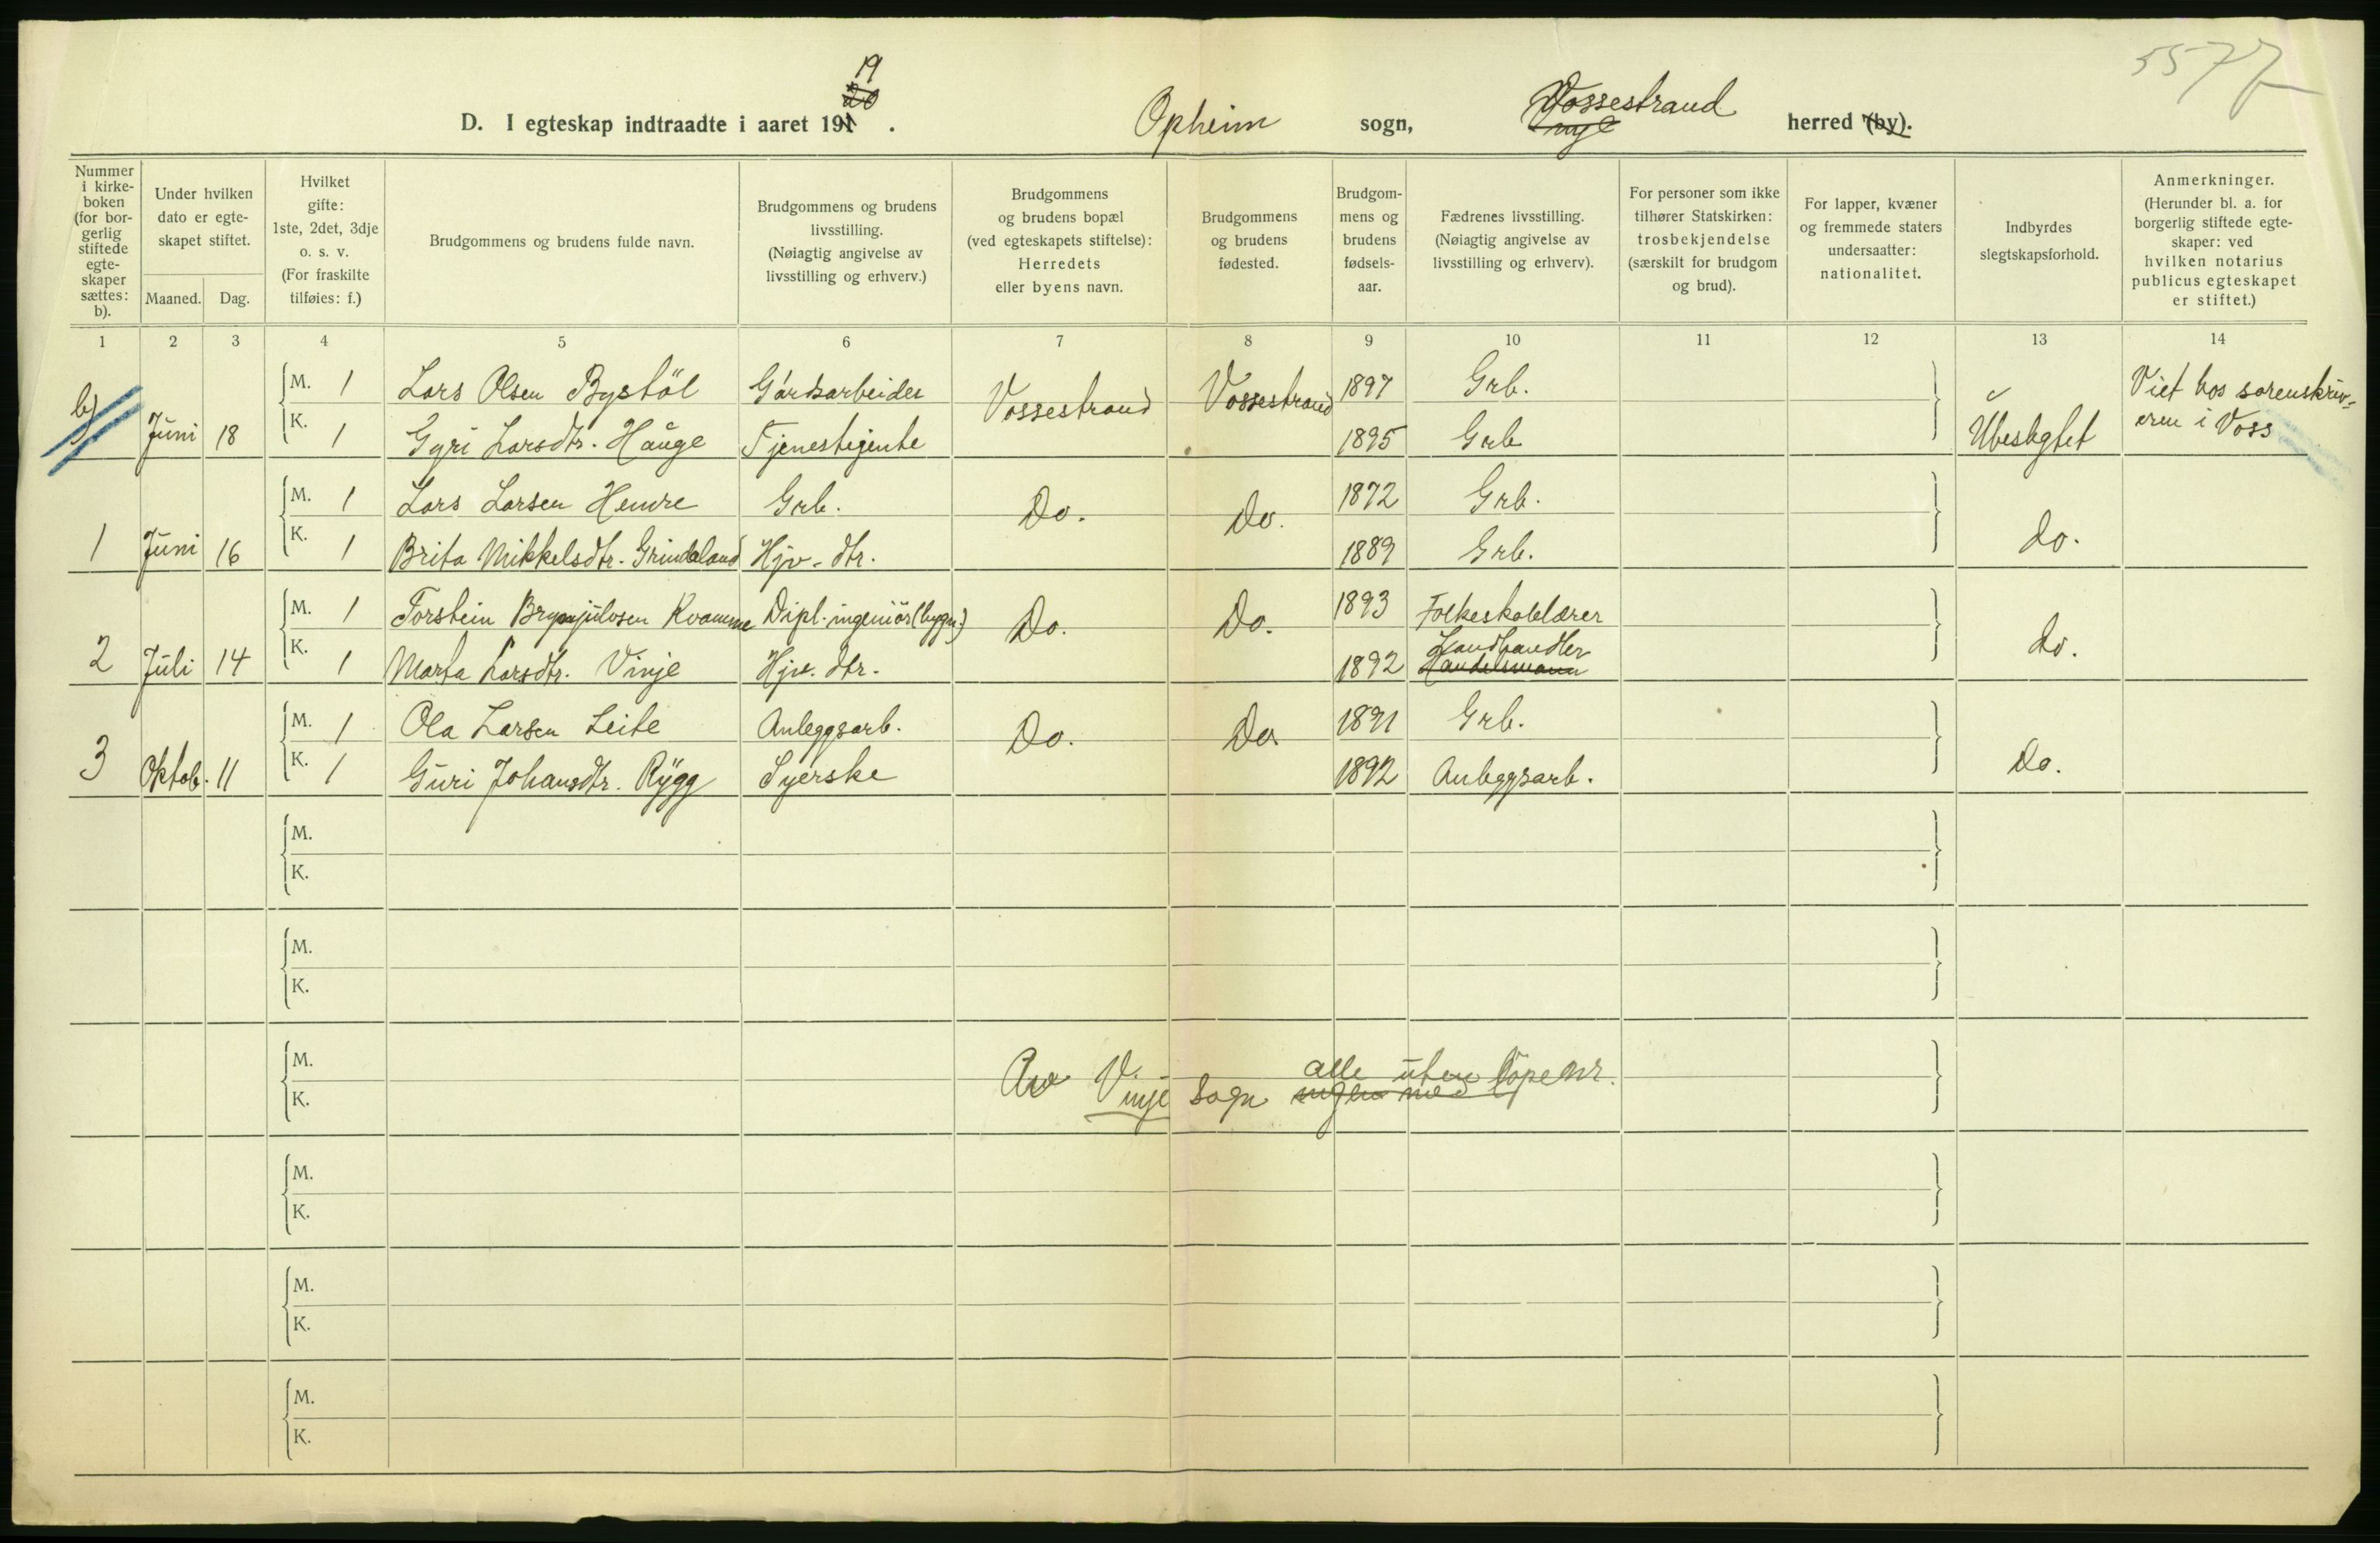 5577
19
20
D. I egteskap indtraadte i aaret 191 . Opheim sogn, Vossestrand herred (by).
Vinje
Nummer i kirke-boken (for bor-gerlig stiftede egte-skaper sættes: b).
Under hvilken dato er egte-skapet stiftet.
Maaned. Dag.
Hvilket gifte: 1ste, 2det, 3dje o. s. v. (For fraskilte tilføies: f.)
Brudgommens og brudens fulde navn.
Brudgommens og brudens livsstilling. (Nøiagtig angivelse av livsstilling og erhverv.)
Brudgommens og brudens bopæl (ved egteskapets stiftelse): Herredets eller byens navn.
Brudgommens og brudens fødested.
Brudgom-mens og brudens fødsels-aar.
Fædrenes livsstilling. (Nøiagtig angivelse av livsstilling og erhverv).
For personer som ikke tilhører Statskirken: trosbekjendelse (særskilt for brudgom og brud).
For lapper, kvæner og fremmede staters undersaatter: nationalitet.
Indbyrdes slegtskapsforhold.
Anmerkninger. (Herunder bl. a. for borgerlig stiftede egte-skaper: ved hvilken notarius publicus egteskapet er stiftet.)
1 2 3 4 5 6 7 8 9 10 11 12 13 14
b) Juni 18 M. 1 Lars Olsen Bystöl Gårdsarbeider Vossestrand Vossestrand 1897 Grb. Ubeslegtet Viet hos sorenskriv-
K. 1 Gyri Larsdtr. Hauge Tjenestejente 1895 Grb eren i Voss
1 Juni 16 M. 1 Lars Larsen Hemre Grb. Do. Do. 1872 Grb. do.
K. 1 Brita Mikkelsdtr. Grindaland Hjv. dtr. 1889 Grb.
2 Juli 14 M. 1 Torstein Brynjulvsen Kvamme Dipl. ingeniör (bygn.) Do. Do. 1893 Folkeskolelærer do.
K. 1 Marta Larsdtr. Vinje Hjv. dtr. 1892 Landhandler
Handelsmann
3 Oktob. 11 M. 1 Ola Larsen Leite Anleggsarb. Do. Do 1891 Grb. Do.
K. 1 Guri Johansdtr. Rygg Syerske 1892 Anleggsarb.
M.
K.
M.
K.
M.
alle uten löpenr.
Av Vinje sogn ingen med
K.
M.
K.
M.
K.
M.
K.